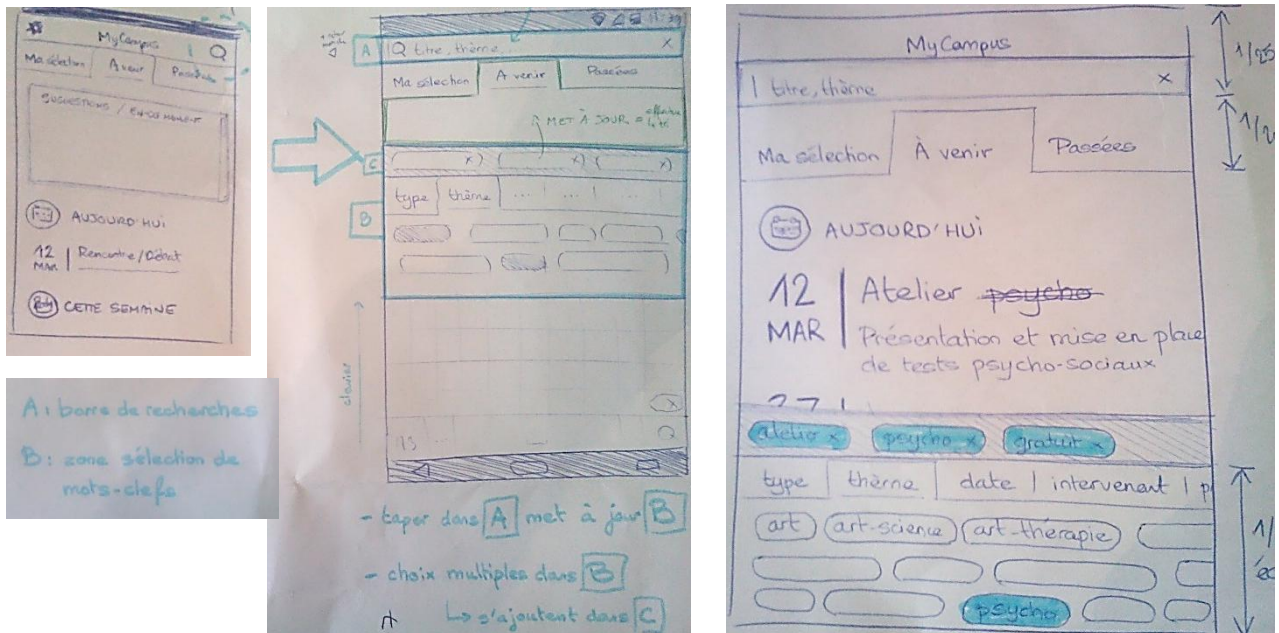 MyCampus
Ma sélection
A venir
Passées
SUGGESTIONS / EN CE MOMENT
AUJOURD'HUI
12
MAR
Rencontre/Débat
CETTE SEMAINE
A : barre de recherches
B : zone sélection de
mots-clefs
A
titre, thème...
x
Ma sélection
A venir
Passées
MET À JOUR =
C
x
x
x
type
thème
...
...
...
B
clavier
x
- taper dans A met à jour B
- choix multiples dans B
↳ s'ajoutent dans C
MyCampus
titre, thème
x
Ma sélection
À venir
Passées
AUJOURD'HUI
12
MAR
Atelier psycho
Présentation et mise en place
de tests psycho-sociaux
atelier x
psycho x
gratuit x
type
thème
date
intervenant
art
art-science
art-thérapie
psycho